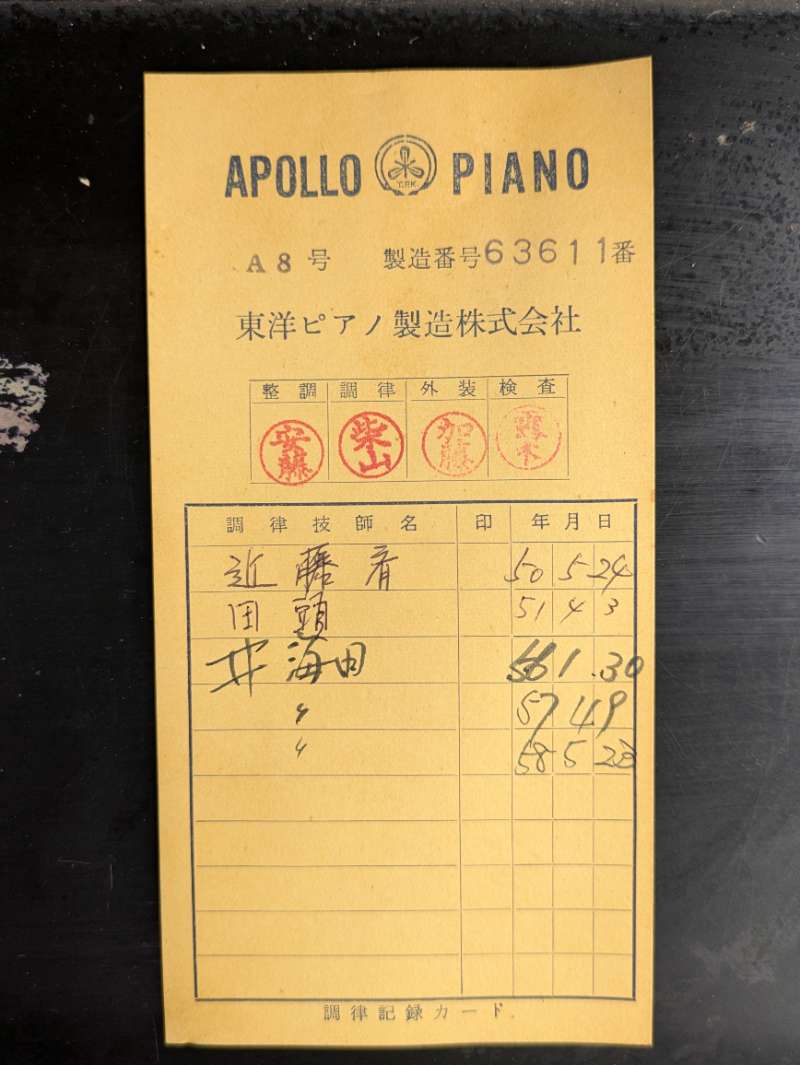 APOLLO T.P.K. PIANO
A8号 製造番号63611番
東洋ピアノ製造株式会社
整調 調律 外装 検査
安藤 柴山 加藤
調律技師名 印 年月日
近藤 50 5 24
田頭 51 4 3
井海田 56 1.30
〃 57 4 9
〃 58 5 23
調律記録カード